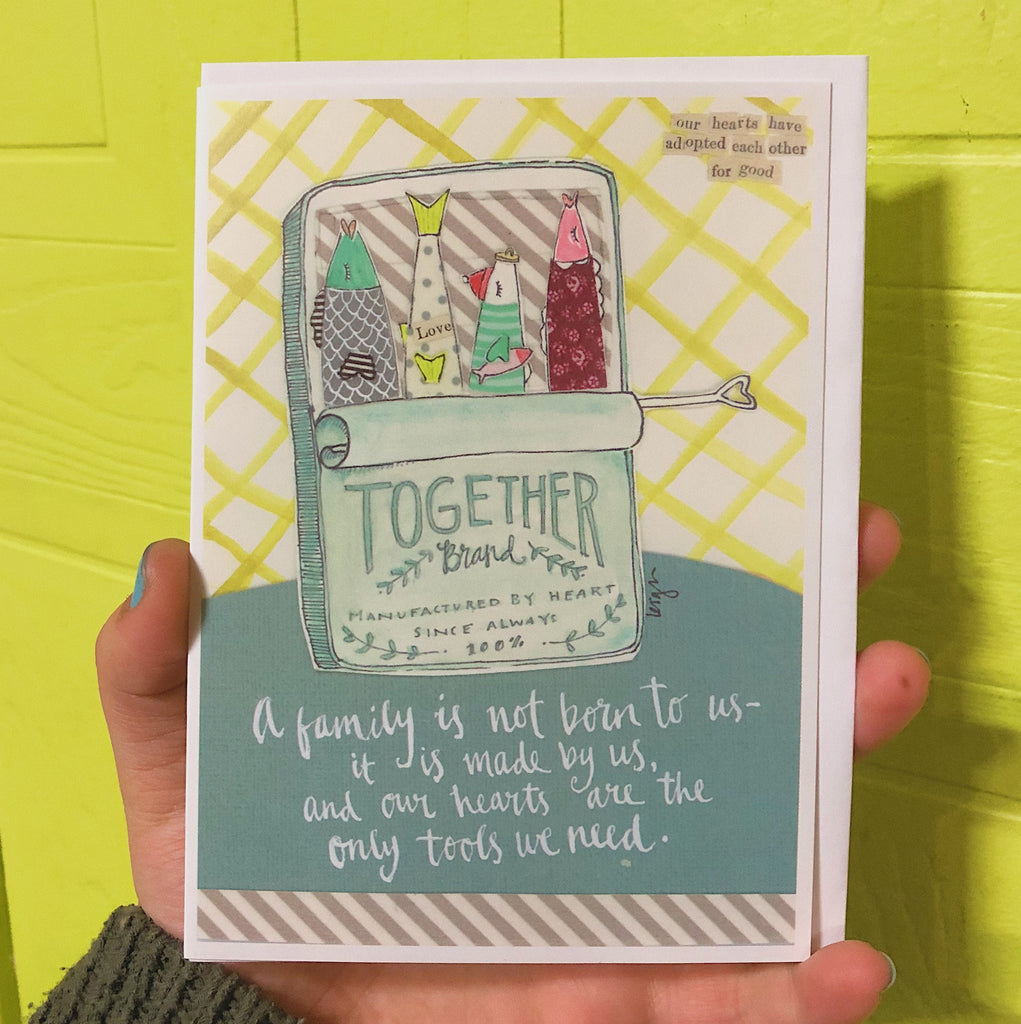 our hearts have
adopted each other
for good
Love
TOGETHER
Brand
MANUFACTURED BY HEART
SINCE ALWAYS
100%
A family is not born to us-
it is made by us,
and our hearts are the
only tools we need.